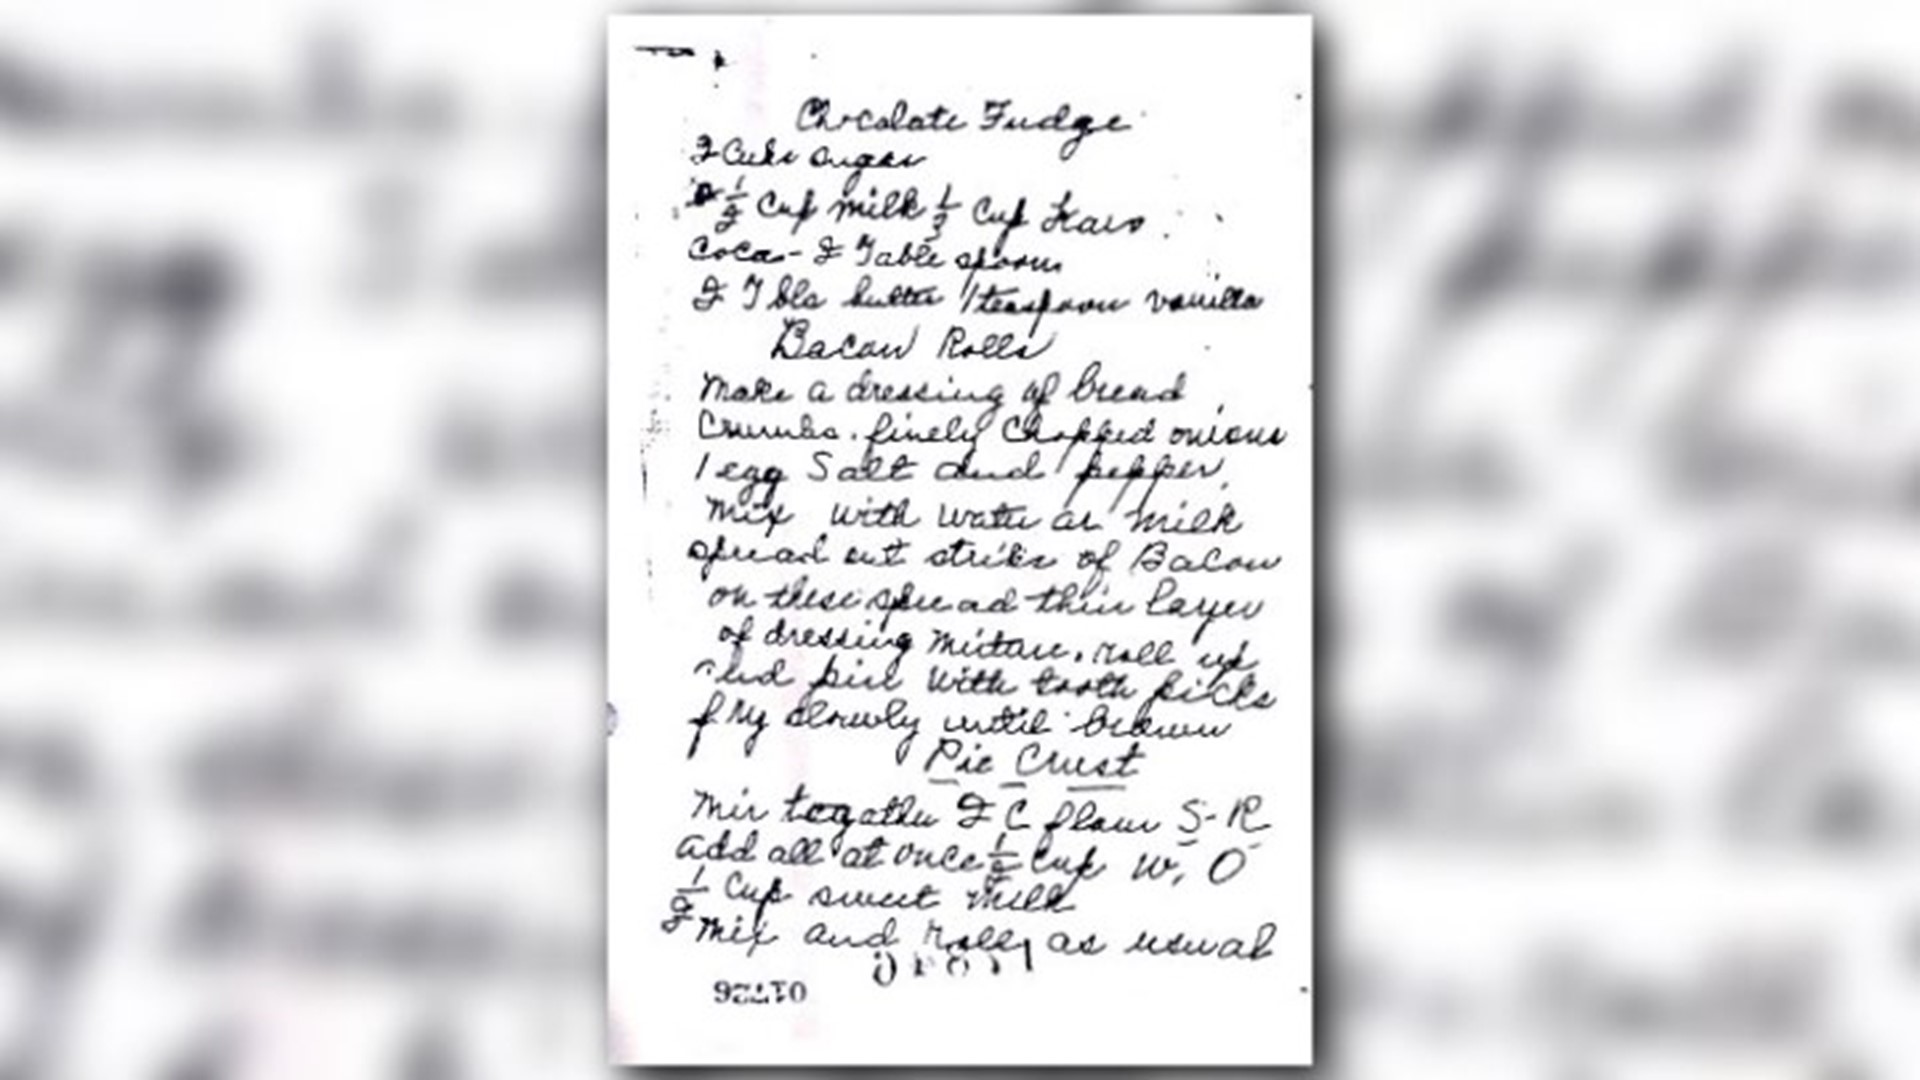 Chocolate Fudge
2 Cubs sugar
1/2 Cup milk 1/3 Cup Karo
Coca - 2 Table spoons
2 Tbls butter 1 teaspoon vanilla
Bacon Rolls
Make a dressing of bread
Crumbs. finely Chopped onions
1 egg Salt and pepper,
Mix with water or milk
spread out strips of Bacon
on these spread thin layer
of dressing roll up
and pin with tooth picks
fry slowly until brown
Pie Crust
Mix together 2 C flour S-R
add all at once 1/2 Cup W, O
1/2 Cup sweet milk
Mix and roll as usual